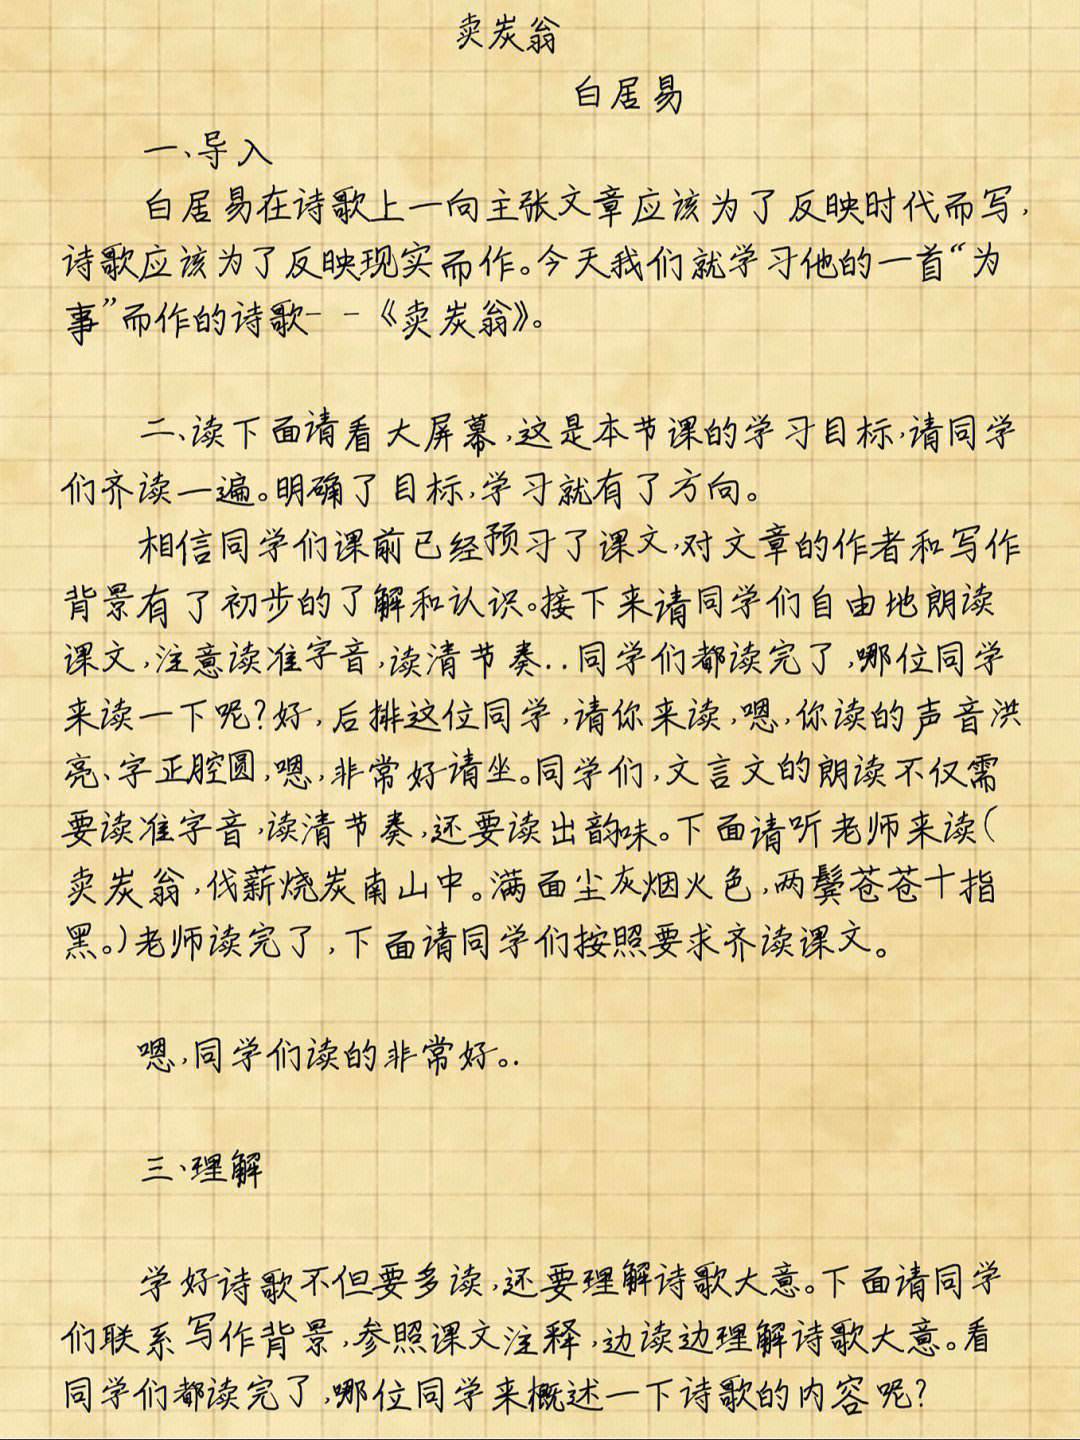 卖炭翁
白居易
一、导入
白居易在诗歌上一向主张文章应该为了反映时代而写,
诗歌应该为了反映现实而作。今天我们就学习他的一首“为
事”而作的诗歌--《卖炭翁》。
二、读下面请看大屏幕,这是本节课的学习目标,请同学
们齐读一遍。明确了目标,学习就有了方向。
相信同学们课前已经预习了课文,对文章的作者和写作
背景有了初步的了解和认识。接下来请同学们自由地朗读
课文,注意读准字音,读清节奏..同学们都读完了,哪位同学
来读一下呢?好,后排这位同学,请你来读,嗯,你读的声音洪
亮、字正腔圆,嗯,非常好请坐。同学们,文言文的朗读不仅需
要读准字音,读清节奏,还要读出韵味。下面请听老师来读(
卖炭翁,伐薪烧炭南山中。满面尘灰烟火色,两鬓苍苍十指
黑。)老师读完了,下面请同学们按照要求齐读课文。
嗯,同学们读的非常好。.
三、理解
学好诗歌不但要多读,还要理解诗歌大意。下面请同学
们联系写作背景,参照课文注释,边读边理解诗歌大意。看
同学们都读完了,哪位同学来概述一下诗歌的内容呢?